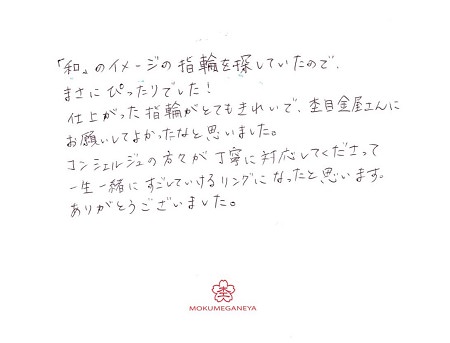 「和」のイメージの指輪を探していたので、
まさにぴったりでした！
仕上がった指輪がとてもきれいで、杢目金屋さんに
お願いしてよかったなと思いました。
コンシェルジュの方々が丁寧に対応してくださって
一生一緒にすごしていけるリングになったと思います。
ありがとうございました。
杢
MOKUMEGANEYA